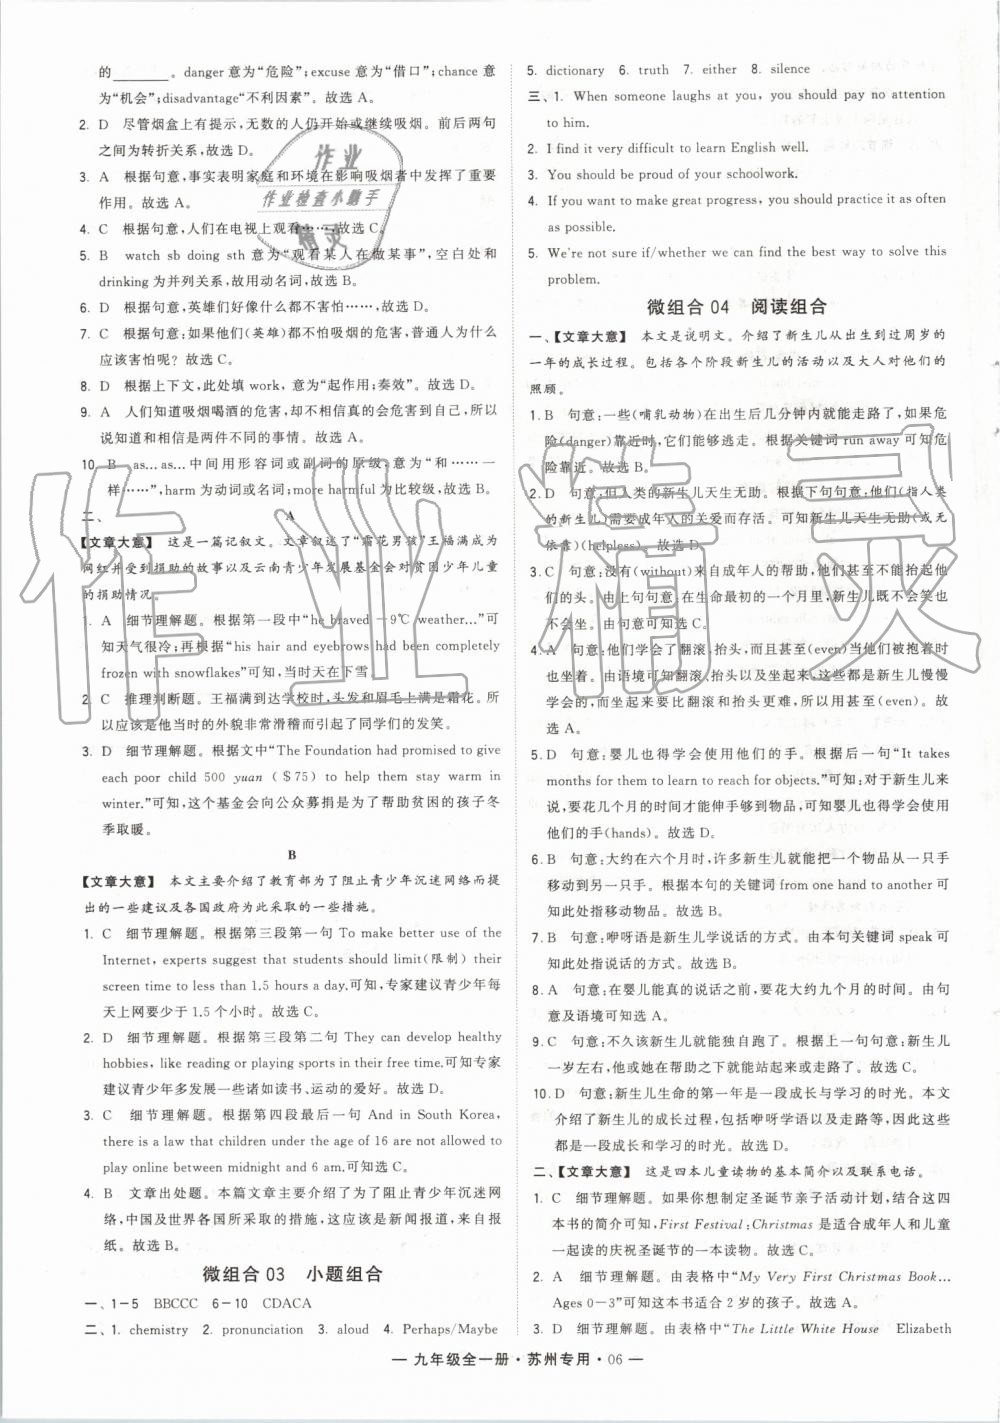 的________。danger 意为“危险”;excuse 意为“借口”;chance 意
为“机会”;disadvantage“不利因素”。故选 A。
2. D 尽管烟盒上有提示,无数的人仍开始或继续吸烟。前后两句
之间为转折关系,故选 D。
3. A 根据句意,事实表明家庭和环境在影响吸烟者中发挥了重要
作用。故选 A。
4. C 根据句意,人们在电视上观看……,故选 C。
5. B watch sb doing sth 意为“观看某人在做某事”,空白处和
drinking 为并列关系,故用动名词,故选 B。
6. D 根据句意,英雄们好像什么都不害怕……,故选 D。
7. C 根据句意;如果他们(英雄)都不怕吸烟的危害,普通人为什么
应该害怕呢? 故选 C。
8. D 根据上下文,此处填 work, 意为“起作用;奏效”。故选 D。
9. A 人们知道吸烟喝酒的危害,却不相信真的会危害到自己,所以
说知道和相信是两件不同的事情。故选 A。
10. B as...as...中间用形容词或副词的原级,意为“和……一
样……”,harm 为动词或名词;more harmful 为比较级,故选 B。
二、 A
【文章大意】 这是一篇记叙文。文章叙述了“霜花男孩”王福满成为
网红并受到捐助的故事以及云南青少年发展基金会对贫困少年儿童
的捐助情况。
1. A 细节理解题。根据第一段中“he braved －9℃ weather...”可
知天气很冷;再根据“his hair and eyebrows had been completely
frozen with snowflakes”可知,当时天在下雪。
2. C 推理判断题。王福满到达学校时,头发和眉毛上满是霜花。所
以应该是他当时的外貌非常滑稽而引起了同学们的发笑。
3. D 细节理解题。根据文中“The Foundation had promised to give
each poor child 500 yuan (＄75) to help them stay warm in
winter.”可知,这个基金会向公众募捐是为了帮助贫困的孩子冬
季取暖。
B
【文章大意】 本文主要介绍了教育部为了阻止青少年沉迷网络而提
出的一些建议及各国政府为此采取的一些措施。
1. C 细节理解题。根据第三段第一句 To make better use of the
Internet, experts suggest that students should limit(限制) their
screen time to less than 1.5 hours a day.可知,专家建议青少年每
天上网要少于 1.5 个小时。故选 C。
2. D 细节理解题。根据第三段第二句 They can develop healthy
hobbies, like reading or playing sports in their free time.可知专家
建议青少年多发展一些诸如读书、运动的爱好。故选 D。
3. C 细节理解题。根据第四段最后一句 And in South Korea,
there is a law that children under the age of 16 are not allowed to
play online between midnight and 6 am.可知。故选 C。
4. B 文章出处题。本篇文章主要介绍了为了阻止青少年沉迷网
络,中国及世界各国所采取的措施,这应该是新闻报道,来自报
纸。故选 B。
微组合 03 小题组合
一、1－5 BBCCC 6－10 CDACA
二、1. chemistry 2. pronunciation 3. aloud 4. Perhaps/Maybe
5. dictionary 6. truth 7. either 8. silence
三、1. When someone laughs at you, you should pay no attention
to him.
2. I find it very difficult to learn English well.
3. You should be proud of your schoolwork.
4. If you want to make great progress, you should practice it as often
as possible.
5. We're not sure if/whether we can find the best way to solve this
problem.
微组合 04 阅读组合
一、【文章大意】 本文是说明文。介绍了新生儿从出生到过周岁的
一年的成长过程。包括各个阶段新生儿的活动以及大人对他们的
照顾。
1. B 句意:一些(哺乳动物)在出生后几分钟内就能走路了,如果危
险(danger)靠近时,它们能够逃走。根据关键词 run away 可知危
险靠近。故选 B。
2. D 句意:但人类的新生儿天生无助。根据下句句意,他们(指人类
的新生儿)需要成年人的关爱而存活。可知新生儿天生无助(或无
依靠)(helpless)。故选 D。
3. C 句意:没有(without)来自成年人的帮助,他们甚至不能抬起他
们的头。由上句句意,在生命最初的一个月里,新生儿既不会笑也
不会坐。由句意可知选 C。
4. A 句意:他们学会了翻滚,抬头,而且甚至(even)当他们被抱着时
也坐着。由语境可知翻滚、抬头以及坐起来,这些都是新生儿慢慢
学会的,而坐起来要比翻滚和抬头更难,所以用甚至(even)。故
选 A。
5. D 句意:婴儿也得学会使用他们的手。根据后一句“It takes
months for them to learn to reach for objects.”可知:对于新生儿来
说,要花几个月的时间才能伸手够到物品,可知婴儿得学会使用
他们的手(hands)。故选 D。
6. B 句意:大约在六个月时,许多新生儿就能把一个物品从一只手
移动到另一只手。根据本句的关键词 from one hand to another 可
知此处指移动物品。故选 B。
7. B 句意:咿呀语是新生儿学说话的方式。由本句关键词 speak 可
知此处指说话的方式。故选 B。
8. A 句意:在婴儿能真的说话之前,要花大约九个月的时间。由句
意及语境可知选 A。
9. C 句意:不久该新生儿就能独自跑了。根据上一句句意:新生儿
一岁左右,他或她在帮助之下就能站起来或走路了。故选 C。
10. D 句意:新生儿生命的第一年是一段成长与学习的时光。本文
介绍了新生儿的成长过程,包括咿呀学语以及走路等,因此,这些
都是一段成长和学习的时光。故选 D。
二、【文章大意】 这是四本儿童读物的基本简介以及联系电话。
1. C 细节理解题。如果你想制定圣诞节亲子活动计划,结合这四
本书的简介可知,First Festival:Christmas 是适合成年人和儿童
一起读的庆祝圣诞节的一本读物。故选 C。
2. A 细节理解题。由表格中“My Very First Christmas Book...
Ages 0－3”可知这本书适合 2 岁的孩子。故选 A。
3. D 细节理解题。由表格中“The Little White House Elizabeth
— 九年级全一册·苏州专用·06 —
作业
作业检查小助手
精灵
作业精灵